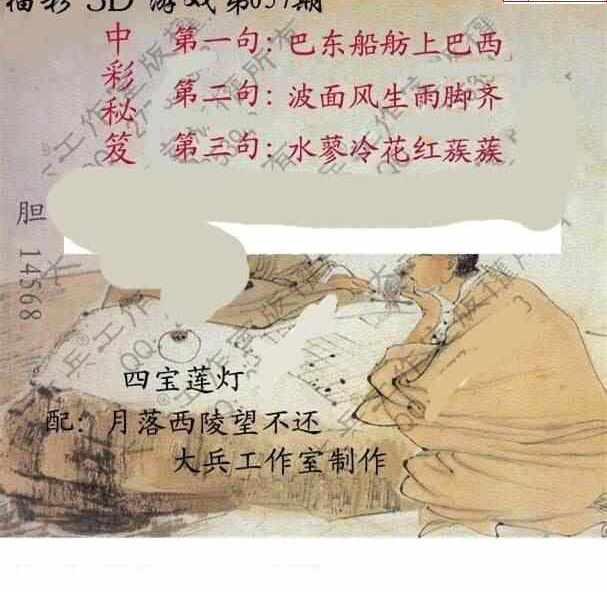 福彩 3D 游戏 第057期
中彩秘笈
第一句：巴东船舫上巴西
第二句：波面风生雨脚齐
第三句：水蓼冷花红蔟蔟
胆 14568
四宝莲灯
配：月落西陵望不还
大兵工作室制作